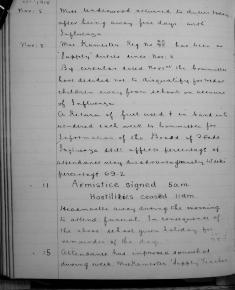 Nov. 5 Miss Underwood returned to duties today
after being away five days with
Influenza
Nov. 8 Mrs Ramster Reg No has been on
'Supply' duties since Nov. 5
By circular dated Nov the Committee
have decided not to disqualify for medals
children away from school on account
of Influenza
A Return of fuel used & in hand is
rendered each week to Committee for
information of the Board of Trade
Influenza still affects percentage of
attendance very
percentage 69.2
" 11 Armistice signed 5am
Hostilities ceased 11am
Headmaster away during the morning
to attend funeral. In consequence of
the above school given holiday for
remainder of the day.
" 15 Attendance has improved somewhat
during week. Mrs Ramster 'Supply' Teacher